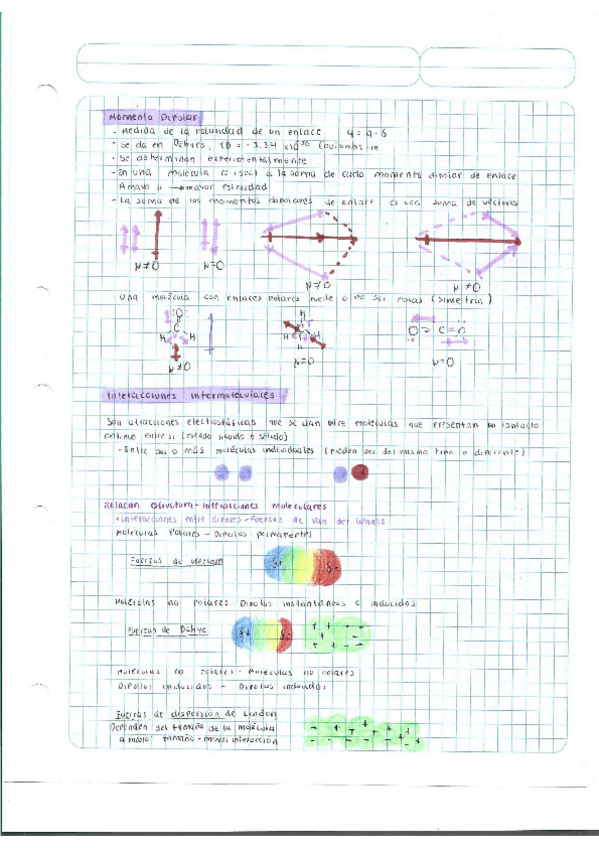 Momento Dipolar
- Medida de la polaridad de un enlace
- Se da en Debyes, 1D = - 3.34 x10⁻³⁰ Coulombs·m
- Se determinan experimentalmente
- En una molécula es igual a la suma de cada momento dipolar de enlace
A mayor μ → mayor polaridad
- La suma de los momentos dipolares de enlace es una suma de vectores
μ≠0 μ=0
μ≠0 μ≠0
Una molécula con enlaces polares puede o no ser polar (simetría)
O
C
H H
μ≠0
H
C
H
μ=0
O = C = O
μ=0
Interacciones intermoleculares
Son atracciones electrostáticas que se dan entre moléculas que presentan un contacto
continuo entre si (estado líquido o sólido)
- Entre dos o más moléculas individuales (pueden ser del mismo tipo o diferente)
Relación estructura - interacciones moleculares
• Interacciones entre dipolos - Fuerzas de Van der Waals
Moléculas Polares - Dipolos permanentes
Fuerzas de
δ+ δ-
Moléculas no polares Dipolos instantáneos e inducidos
Fuerzas de Debye
δ+ δ-
Moléculas no polares - Moléculas no polares
Dipolos inducidos - Dipolos inducidos
Fuerzas de dispersión de London
Dependen del tamaño de la molécula
A mayor tamaño - mayor interacción